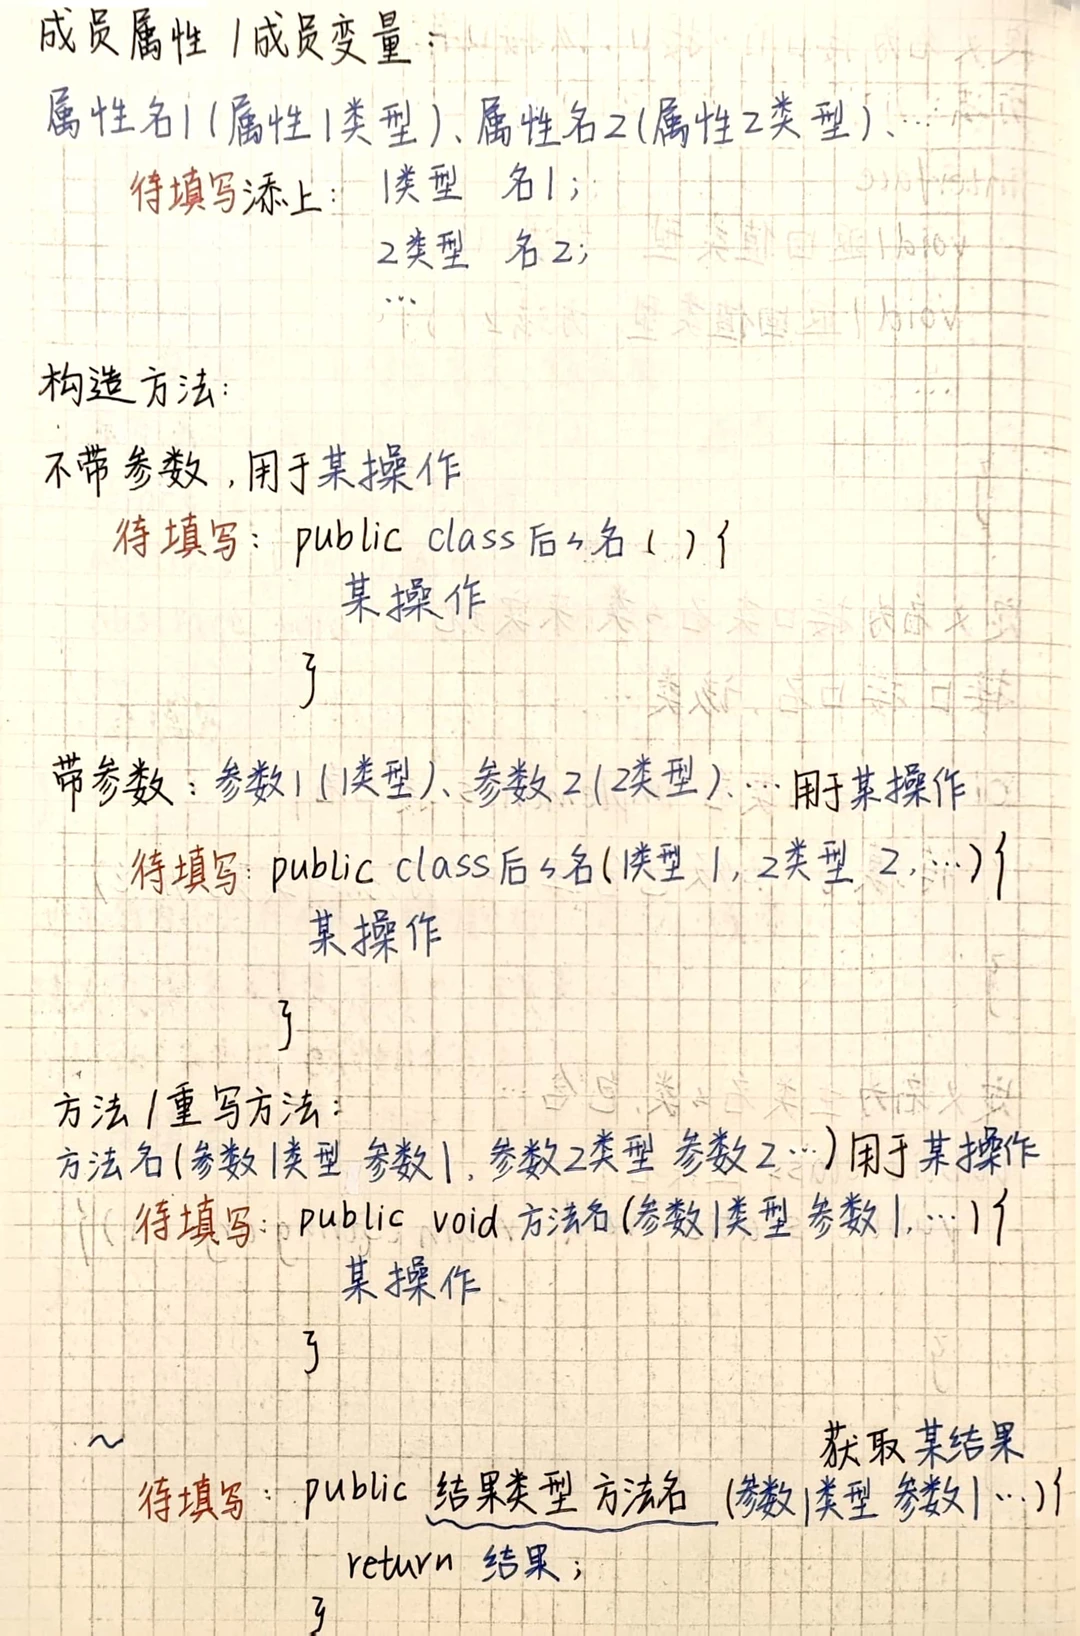 成员属性/成员变量：
属性名1(属性1类型)、属性名2(属性2类型)、…
待填写添上： 1类型 名1;
2类型 名2;
…
构造方法：
不带参数,用于某操作
待填写： public class后名( ){
某操作
}
带参数：参数1(1类型)、参数2(2类型)、…用于某操作
待填写：public class后名(1类型 1, 2类型 2, …){
某操作
}
方法/重写方法：
方法名(参数1类型 参数1, 参数2类型 参数2…)用于某操作
待填写： public void 方法名(参数1类型 参数1, …){
某操作
}
~ 获取某结果
待填写： public 结果类型 方法名 (参数1类型 参数1 …){
return 结果;
}